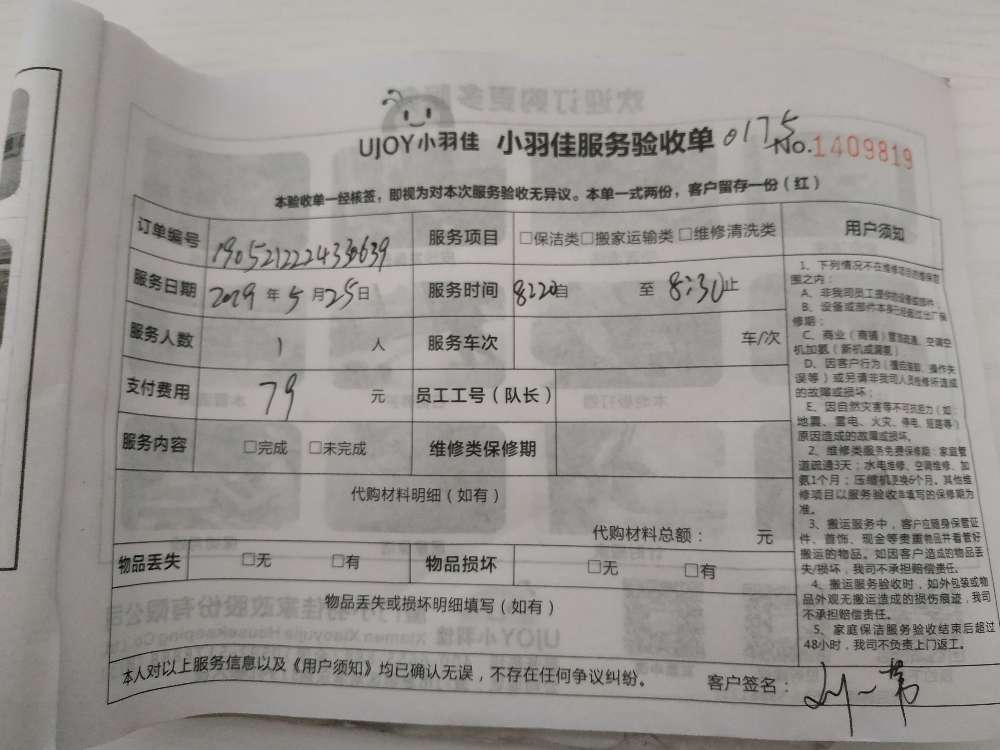 UJOY小羽佳 小羽佳服务验收单 0175
No.1409819
本验收单一经核签，即视为对本次服务验收无异议。本单一式两份，客户留存一份（红）
订单编号 服务项目 □保洁类□搬家运输类□维修清洗类 用户须知
服务日期 年5月25日 服务时间 8:20自 至 8:30止
服务人数 1 人 服务车次 车/次
支付费用 79 元 员工工号（队长）
服务内容 □完成 □未完成 维修类保修期
代购材料明细（如有）
代购材料总额： 元
物品丢失 □无 □有 物品损坏 □无 □有
物品丢失或损坏明细填写（如有）
本人对以上服务信息以及《用户须知》均已确认无误，不存在任何争议纠纷。 客户签名：
1、下列情况不在维修项目的维保范
围之内：
A、非我司员工提供的设备或部件；
B、设备或部件本身已经超过出厂保
修期；
C、商业（商铺）管道疏通、空调空
机加氨（新机或漏氨）
D、因客户行为（擅自拆卸、操作失
误等）或另请非我司人员维修所造成
的故障或损坏；
E、因自然灾害等不可抗拒力（如：
地震、雷电、火灾、停电、短路等）
原因造成的故障或损坏。
2、维修类服务免费保修期：家庭管
道疏通3天；水电维修、空调维修、加
氨1个月；压缩机更换6个月。其他维
修项目以服务验收单填写的保修期为
准。
3、搬运服务中，客户应随身保管证
件、首饰、现金等贵重物品并看管好
搬运的物品。如因客户造成的物品丢
失/损坏，我司不承担赔偿责任。
4、搬运服务验收时，如外包装或物
品外观无搬运造成的损伤痕迹，我司
不承担赔偿责任。
5、家庭保洁服务验收结束后超过
48小时，我司不负责上门返工。